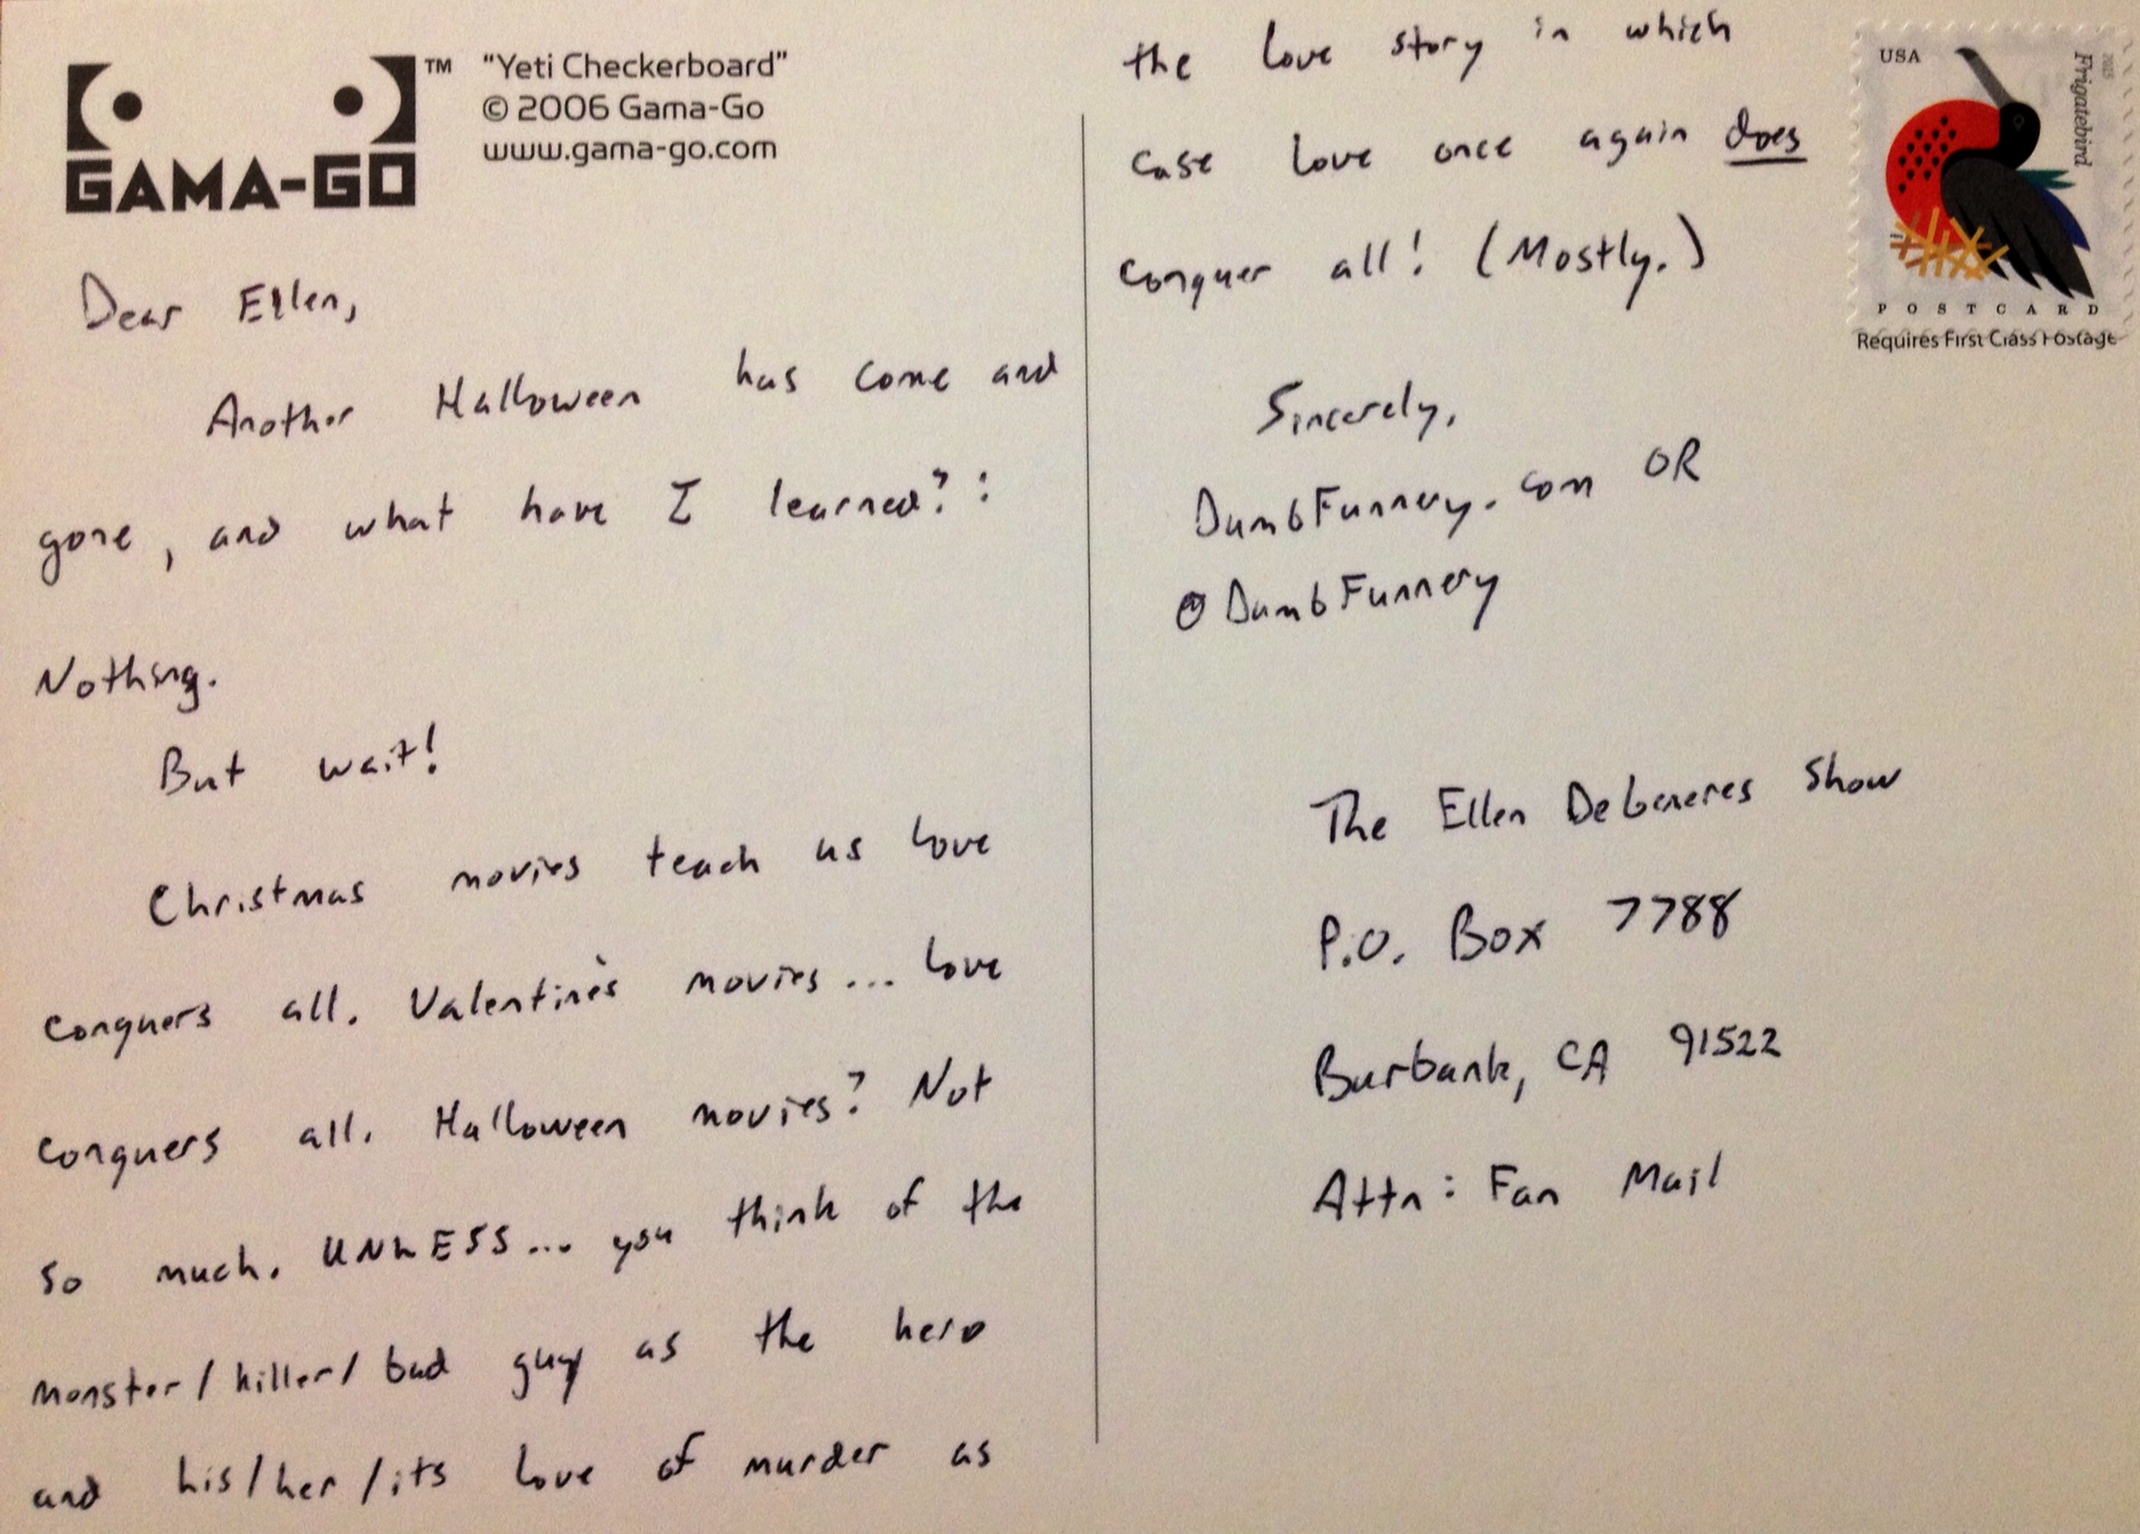 GAMA-GO
TM
"Yeti Checkerboard"
© 2006 Gama-Go
www.gama-go.com
Dear Ellen,
Another Halloween has come and
gone, and what have I learned?:
Nothing.
But wait!
Christmas movies teach us love
conquers all. Valentine's movies... love
conquers all. Halloween movies? Not
so much. UNLESS... you think of the
monster/killer/bad guy as the hero
and his/her/its love of murder as
the love story in which
case love once again does
conquer all! (Mostly.)
Sincerely,
DumbFunnery.com OR
@DumbFunnery
USA
Frigatebird
2015
POSTCARD
Requires First Class Postage
The Ellen DeGeneres Show
P.O. Box 7788
Burbank, CA 91522
Attn: Fan Mail